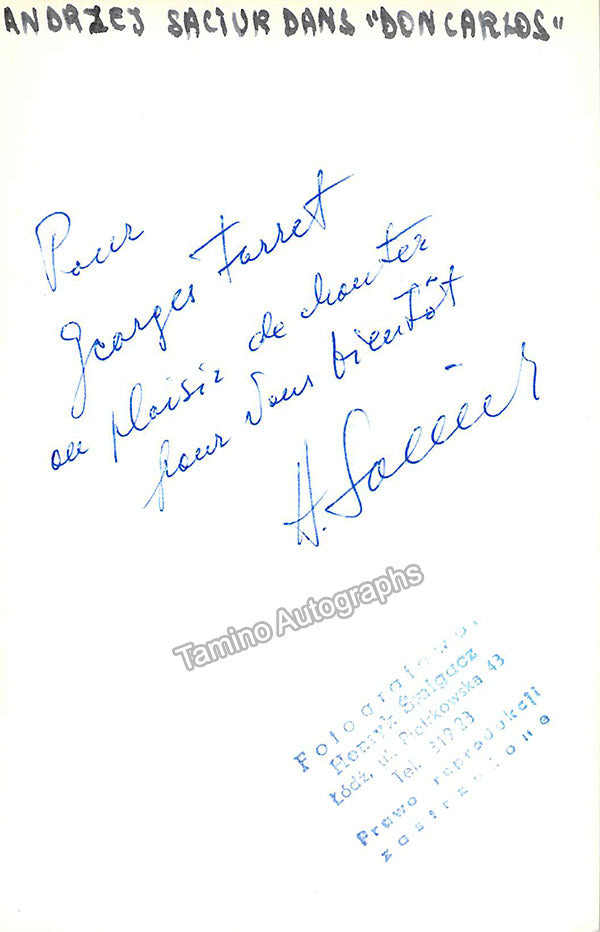 ANDRZEJ SACIUR DANS "DON CARLOS"
Pour
Georges Farret
au plaisir de chanter
pour vous bientôt
A. Saciur
Tamino Autographs
Fotografował
Henryk Śmigacz
Łódź, ul. Piotrkowska 43
Tel. 319-23
Prawo reprodukcji
zastrzeżone